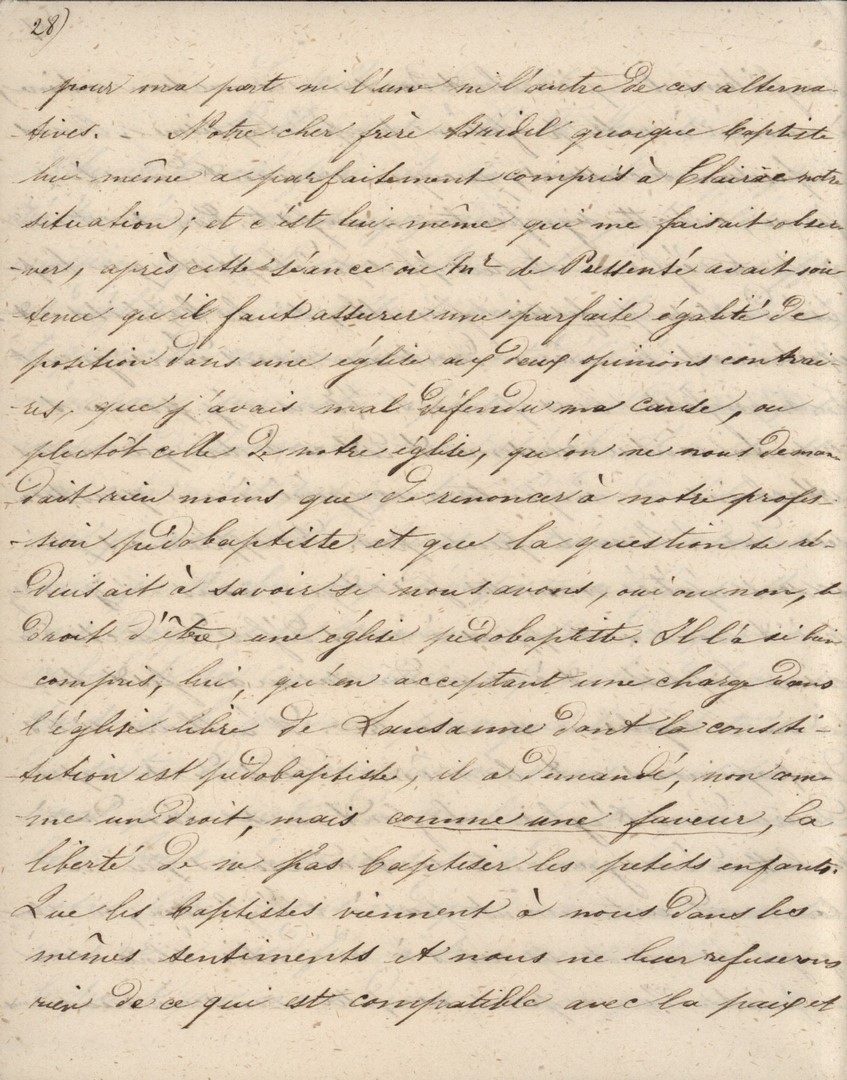 28)
pour ma part ni l'une ni l'autre de ces alterna-
tives. - Notre cher frère Bridel quoique baptiste
lui même a parfaitement compris à Clairac notre
situation; et c'est lui-même qui me faisait obser-
-ver, après cette séance où Mr de Pressensé avait sou
-tenu qu'il faut assurer une parfaite égalité de
position dans une église aux deux opinions contrai-
-res, que j'avais mal défendu ma cause, ou
plutôt celle de notre église, qu'on ne nous deman
dait rien moins que de renoncer à notre profes-
-sion pédobaptiste et que la question se ré-
-duisait à savoir si nous avons, oui ou non, le
droit d'être une église pédobaptiste. Il l'a si bien
compris, lui, qu'en acceptant une charge dans
l'église libre de Lausanne dont la consti-
-tution est pédobaptiste, il a demandé, non com-
-me un droit, mais comme une faveur, la
liberté de ne pas baptiser les petits enfants.
Que les baptistes viennent à nous dans les
mêmes sentiments et nous ne leur refuserons
rien de ce qui est compatible avec la paix et